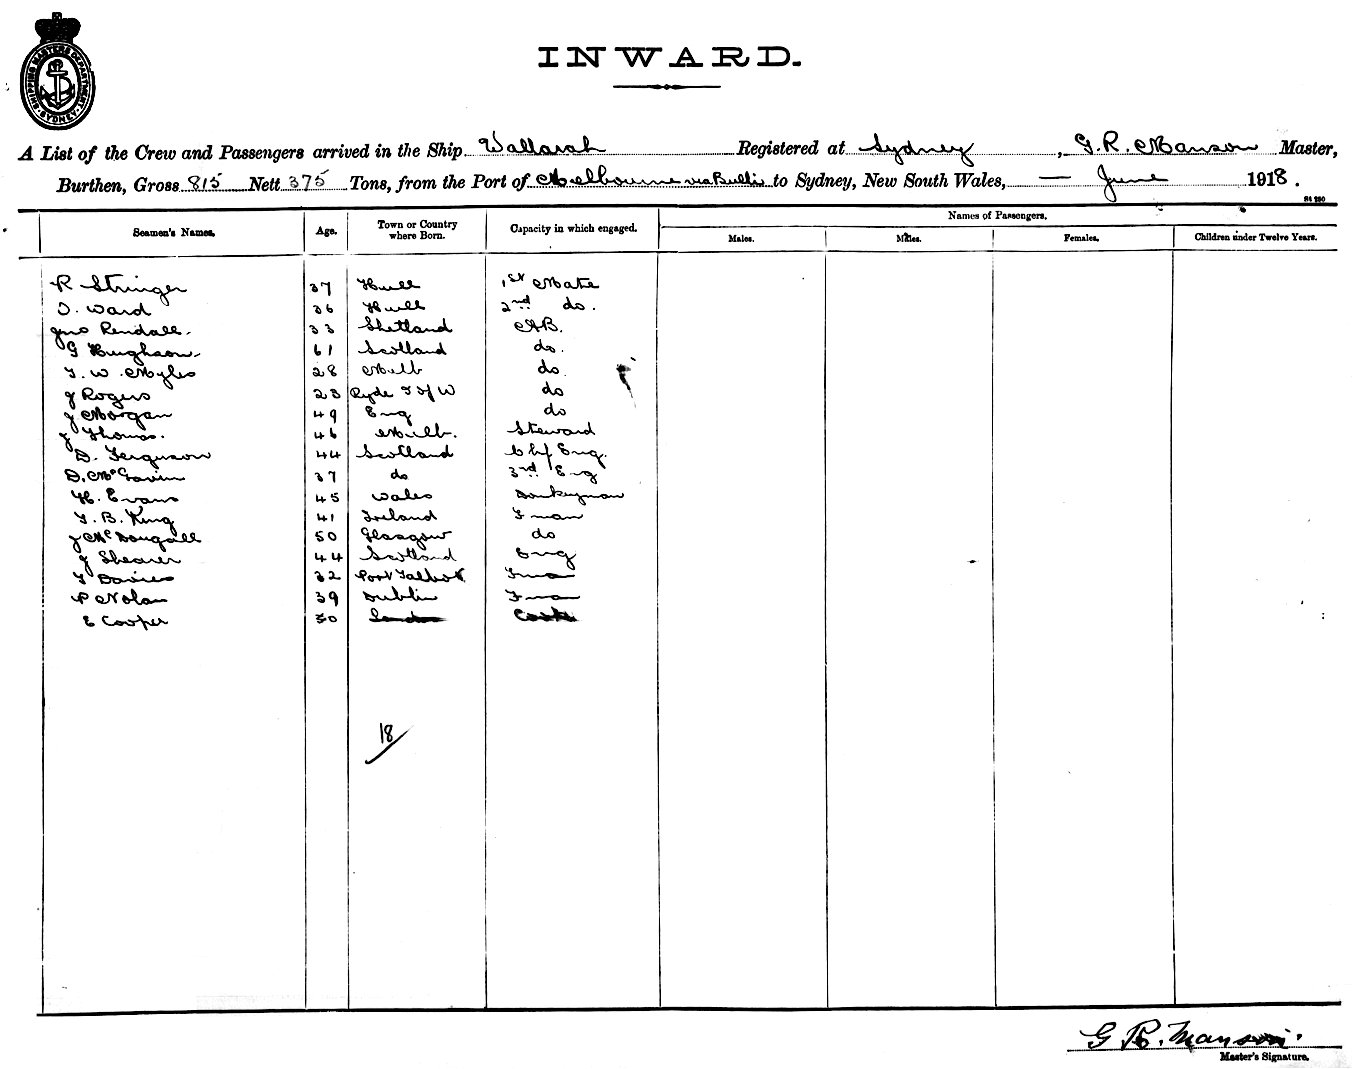 SHIPPING MASTERS DEPARTMENT SYDNEY
INWARD.
A List of the Crew and Passengers arrived in the Ship Wallarah Registered at Sydney, G. R. Manson Master,
Burthen, Gross 815 Nett 375 Tons, from the Port of Melbourne via Bulli to Sydney, New South Wales, — June 1918.
Names of Passengers.
Seamen's Names. Age. Town or Country where Born. Capacity in which engaged. Males. Males. Females. Children under Twelve Years.
R Stringer 37 Hull 1st Mate
D. Ward 36 Hull 2nd do.
Jno Rendall. 33 Shetland AB.
G Hughson. 61 Scotland do.
T. W. Myles 28 Melb do.
J Rogers 23 Ryde I of W do
J Morgan 49 Eng do
J Thomas. 46 Melb. Steward
D. Ferguson 44 Scotland Chf Eng.
D. McGavin 37 do 3rd Eng
H. Evans 45 Wales Donkeyman
T. B. King 41 Ireland Fman
J McDougall 50 Glasgow do
J Shearer 44 Scotland Eng
T Davies 32 Port Talbot Fman
P Nolan 39 Dublin Fman
E Cooper 30 London Cook
18
G R. Manson.
Master's Signature.